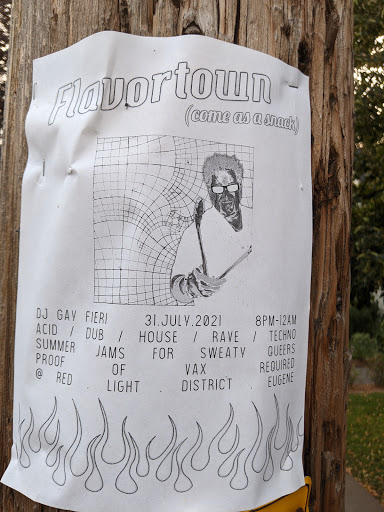 Flavortown
(come as a snack)
DJ GAY FIERI 31.JULY.2021 8PM-12AM
ACID / DUB / HOUSE / RAVE / TECHNO
SUMMER JAMS FOR SWEATY QUEERS
PROOF OF VAX REQUIRED
@ RED . LIGHT . DISTRICT . EUGENE